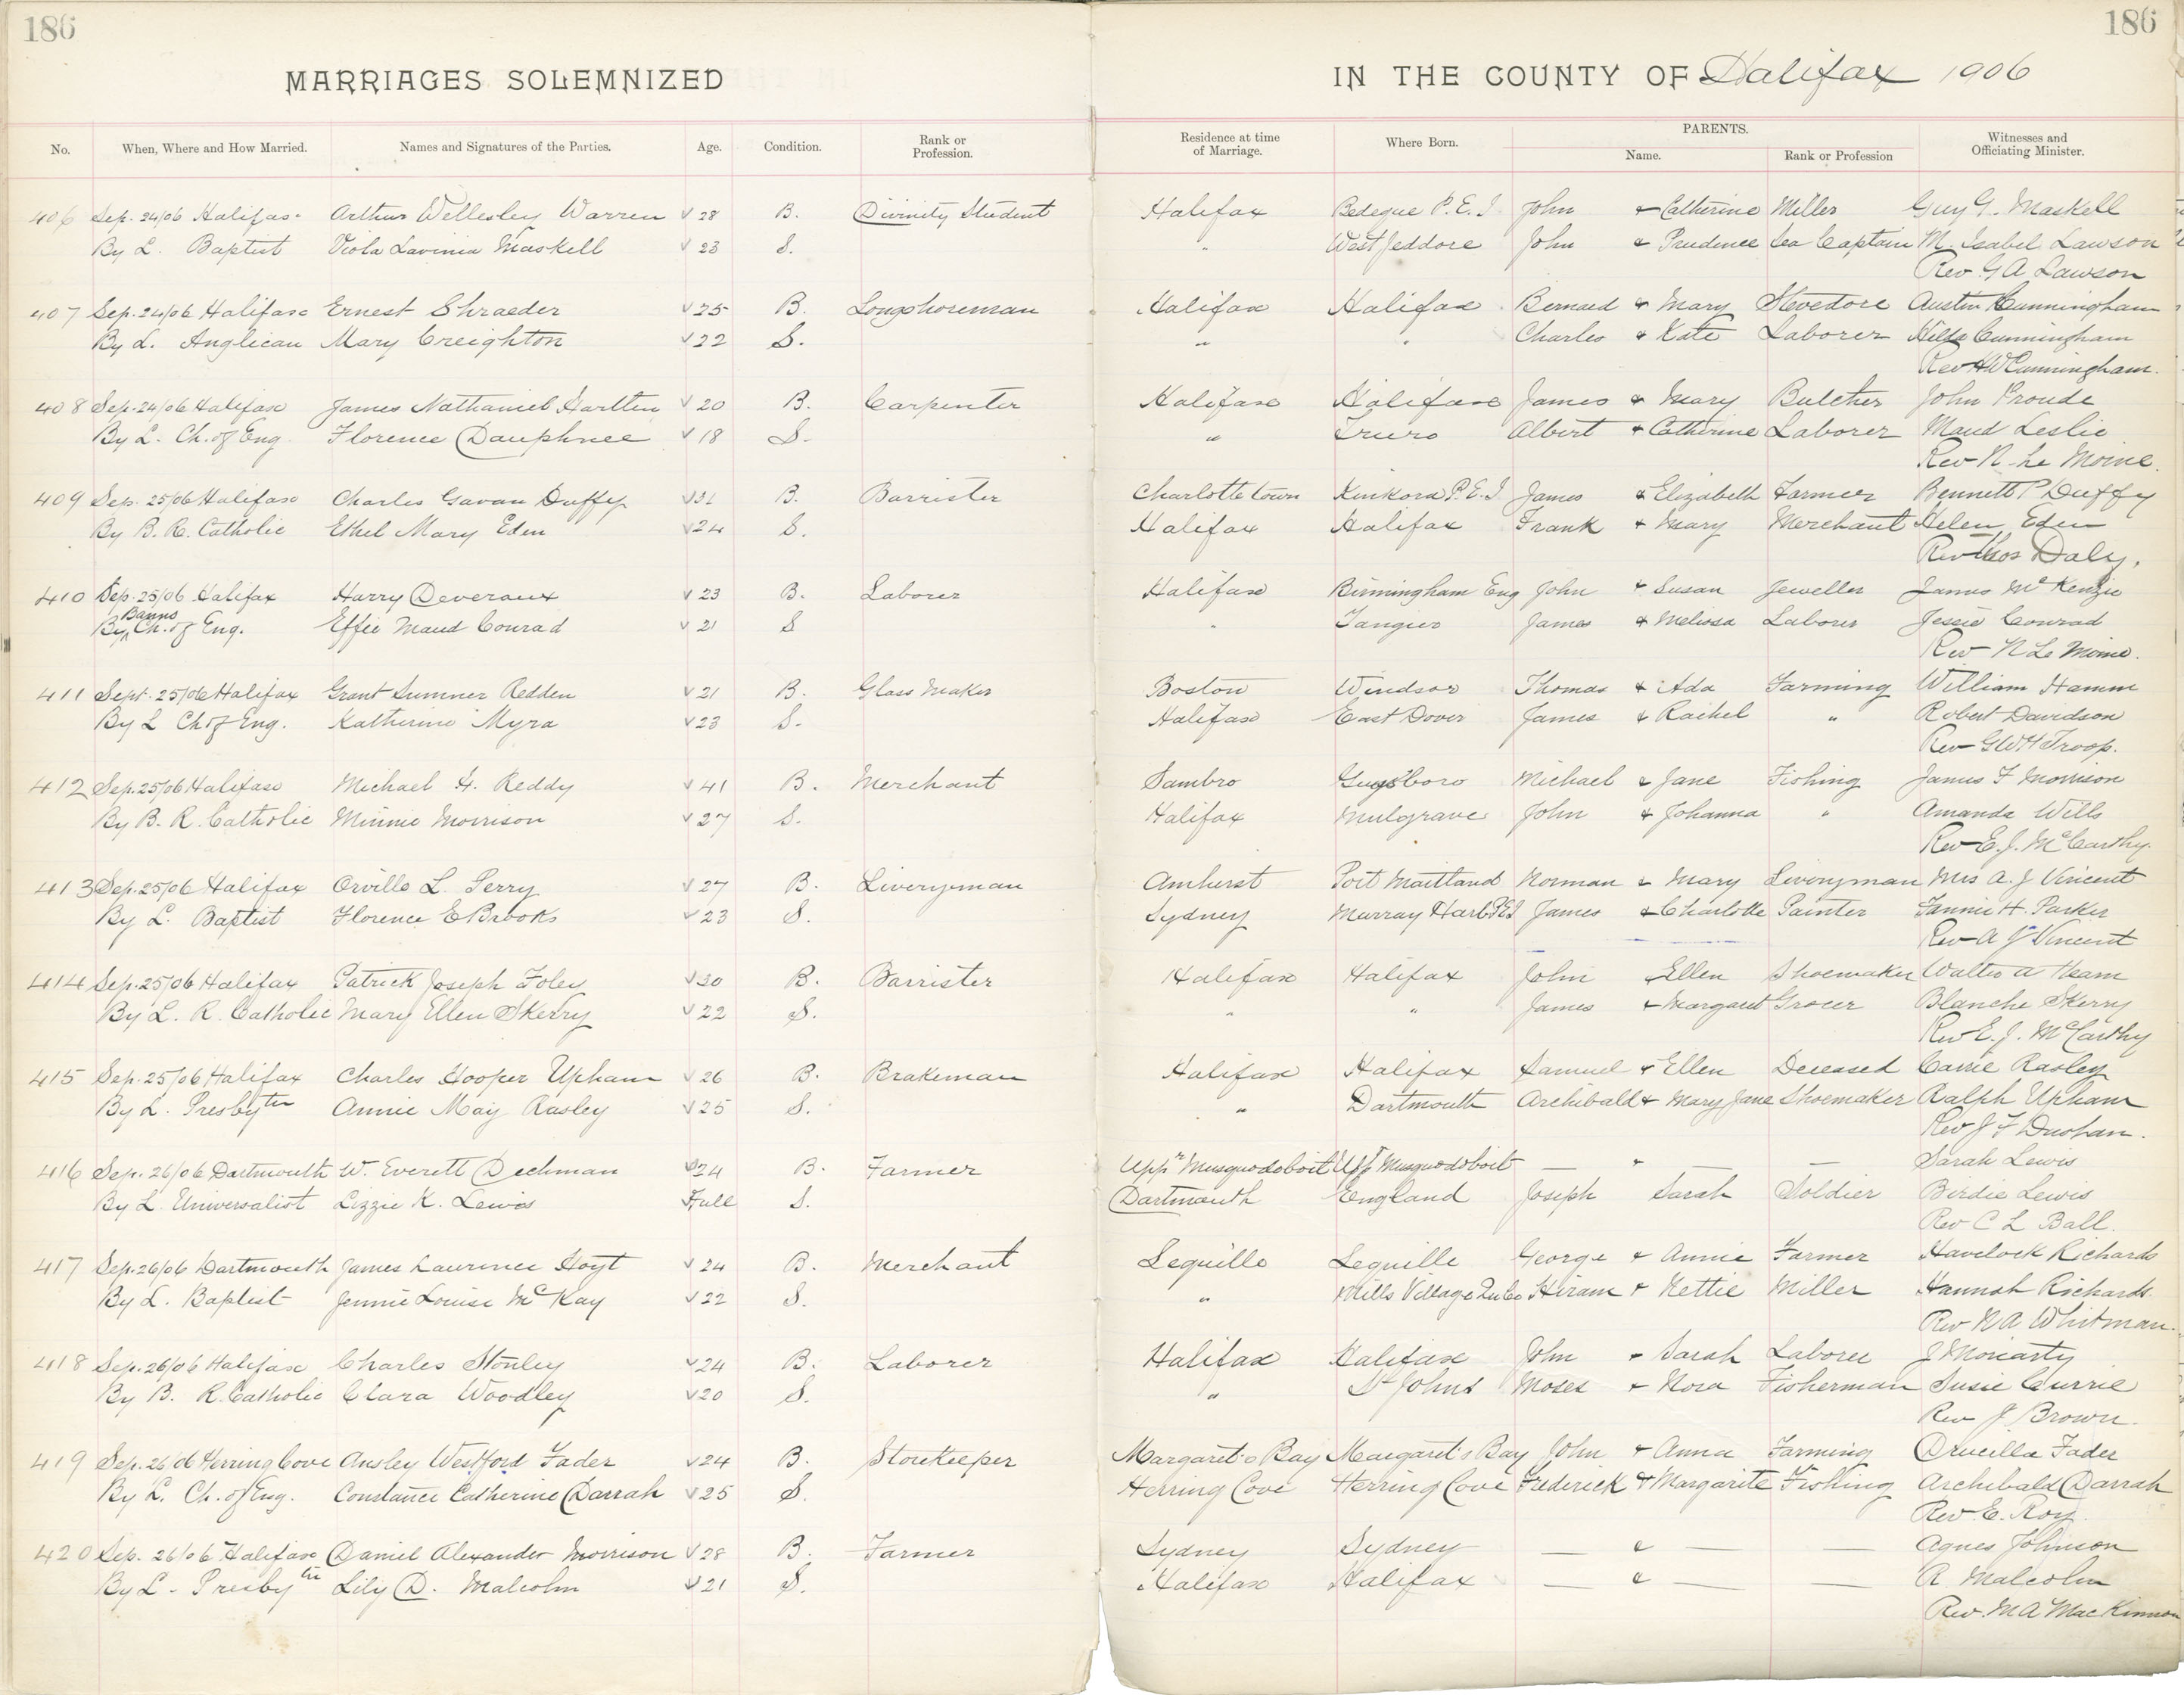 186
186
MARRIAGES SOLEMNIZED
IN THE COUNTY OF Halifax 1906
No. When, Where and How Married. Names and Signatures of the Parties. Age. Condition. Rank or Profession. Residence at time of Marriage. Where Born. PARENTS. Name. Rank or Profession Witnesses and Officiating Minister.
406 Sep. 24/06 Halifax Arthur Wellesley Warren √ 28 B. Divinity Student Halifax Bedeque P.E.I John & Catherine Miller Guy G. Maskell
By L. Baptist Viola Lavinia Maskell √ 23 S. " West Jeddore John & Prudence Sea Captain M. Isabel Lawson
Rev G A Lawson
407 Sep. 24/06 Halifax Ernest Shraeder √ 25 B. Longshoreman Halifax Halifax Bernard & Mary Stevedore Austin Cunningham
By L. Anglican Mary Creighton √ 22 S. " " Charles & Kate Laborer Hilda Cunningham
Rev H W Cunningham.
408 Sep. 24/06 Halifax James Nathaniel Hartlin √ 20 B. Carpenter Halifax Halifax James & Mary Butcher John Proude
By L. Ch. of Eng. Florence Dauphnee √ 18 S. " Truro Albert & Catherine Laborer Maud Leslie
Rev N. Le Moine.
409 Sep. 25/06 Halifax Charles Gavan Duffy √ 31 B. Barrister Charlottetown Kinkora P.E.I James & Elizabeth Farmer Bennett P Duffy
By B. R. Catholic Ethel Mary Eden √ 24 S. Halifax Halifax Frank & Mary Merchant Helen Eden
Rev Thos Daly.
410 Sep. 25/06 Halifax Harry Deveraux √ 23 B. Laborer Halifax Birmingham Eng John & Susan Jeweller James McKenzie
By Banns Ch. of Eng. Effie Maud Conrad √ 21 S " Tangier James & Melissa Laborer Jessie Conrad
Rev N Le Moine.
411 Sept. 25/06 Halifax Grant Sumner Redden √ 21 B. Glass Maker Boston Windsor Thomas & Ada Farming William Hamm
By L Ch of Eng. Katherine Myra √ 23 S. Halifax East Dover James & Rachel " Robert Davidson
Rev G W H Troop.
412 Sep. 25/06 Halifax Michael H. Reddy √ 41 B. Merchant Sambro Guysboro Michael & Jane Fishing James F Morrison
By B. R. Catholic Minnie Morrison √ 27 S. Halifax Mulgrave John & Johanna " Amanda Wills
Rev E. J. McCarthy.
413 Sep. 25/06 Halifax Orville L. Perry √ 27 B. Liveryman Amherst Port Maitland Norman & Mary Liveryman Mrs A. J Vincent
By L. Baptist Florence E Brooks √ 23 S. Sydney Murray Harb PEI James & Charlotte Painter Fannie H. Parker
Rev A J Vincent
414 Sep. 25/06 Halifax Patrick Joseph Foley √ 30 B. Barrister Halifax Halifax John Ellen Shoemaker Walter A Hearn
By L. R. Catholic Mary Ellen Skerry √ 22 S. " " James & Margaret Grocer Blanche Skerry
Rev E. J. McCarthy
415 Sep. 25/06 Halifax Charles Hooper Upham √ 26 B. Brakeman Halifax Halifax Samuel & Ellen Deceased Carrie Rasley
By L. Presbyter Annie May Rasley √ 25 S. " Dartmouth Archibald & Mary Jane Shoemaker Ralph Upham
Rev J F Dustan.
416 Sep. 26/06 Dartmouth W. Everett Dechman √ 24 B. Farmer Uppr Musquodoboit Uppr Musquodoboit — " — — Sarah Lewis
By L. Universalist Lizzie K. Lewis √ Full S. Dartmouth England Joseph Sarah Soldier Birdie Lewis
Rev C L Ball.
417 Sep. 26/06 Dartmouth James Laurence Hoyt √ 24 B. Merchant Lequille Lequille George & Annie Farmer Havelock Richards
By L. Baptist Jennie Louise McKay √ 22 S. " Mills Village Qu Co Hiram & Nettie Miller Hannah Richards
Rev N A Whitman.
418 Sep. 26/06 Halifax Charles Stonley √ 24 B. Laborer Halifax Halifax John & Sarah Laborer J Moriarty
By B. R. Catholic Clara Woodley √ 20 S. " St Johns Moses & Nora Fisherman Susie Currie
Rev J Brown.
419 Sep. 26 06 Herring Cove Ansley Westford Fader √ 24 B. Storekeeper Margaret's Bay Margaret's Bay John & Anna Farming Drucilla Fader
By L. Ch. of Eng. Constance Catherine Darrah √ 25 S. Herring Cove Herring Cove Frederick & Margarite Fishing Archibald Darrah
Rev. E. Roy.
420 Sep. 26/06 Halifax Daniel Alexander Morrison √ 28 B. Farmer Sydney Sydney — & — — Agnes Johnson
By L. Presbyter Lily D. Malcolm √ 21 S. Halifax Halifax — & — — A. Malcolm
Rev. M A MacKinnon